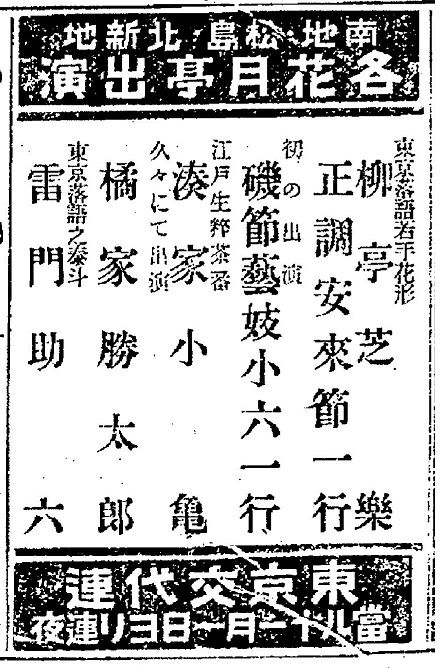 南地・松島・北新地
各花月亭出演
東京落語若手花形
柳亭芝樂
正調安來節一行
初の出演
磯節藝妓小六一行
江戸生粋茶番
湊家小亀
久々にて出演
橘家勝太郎
東京落語之泰斗
雷門助六
東京交代連
當ル十一月一日ヨリ連夜